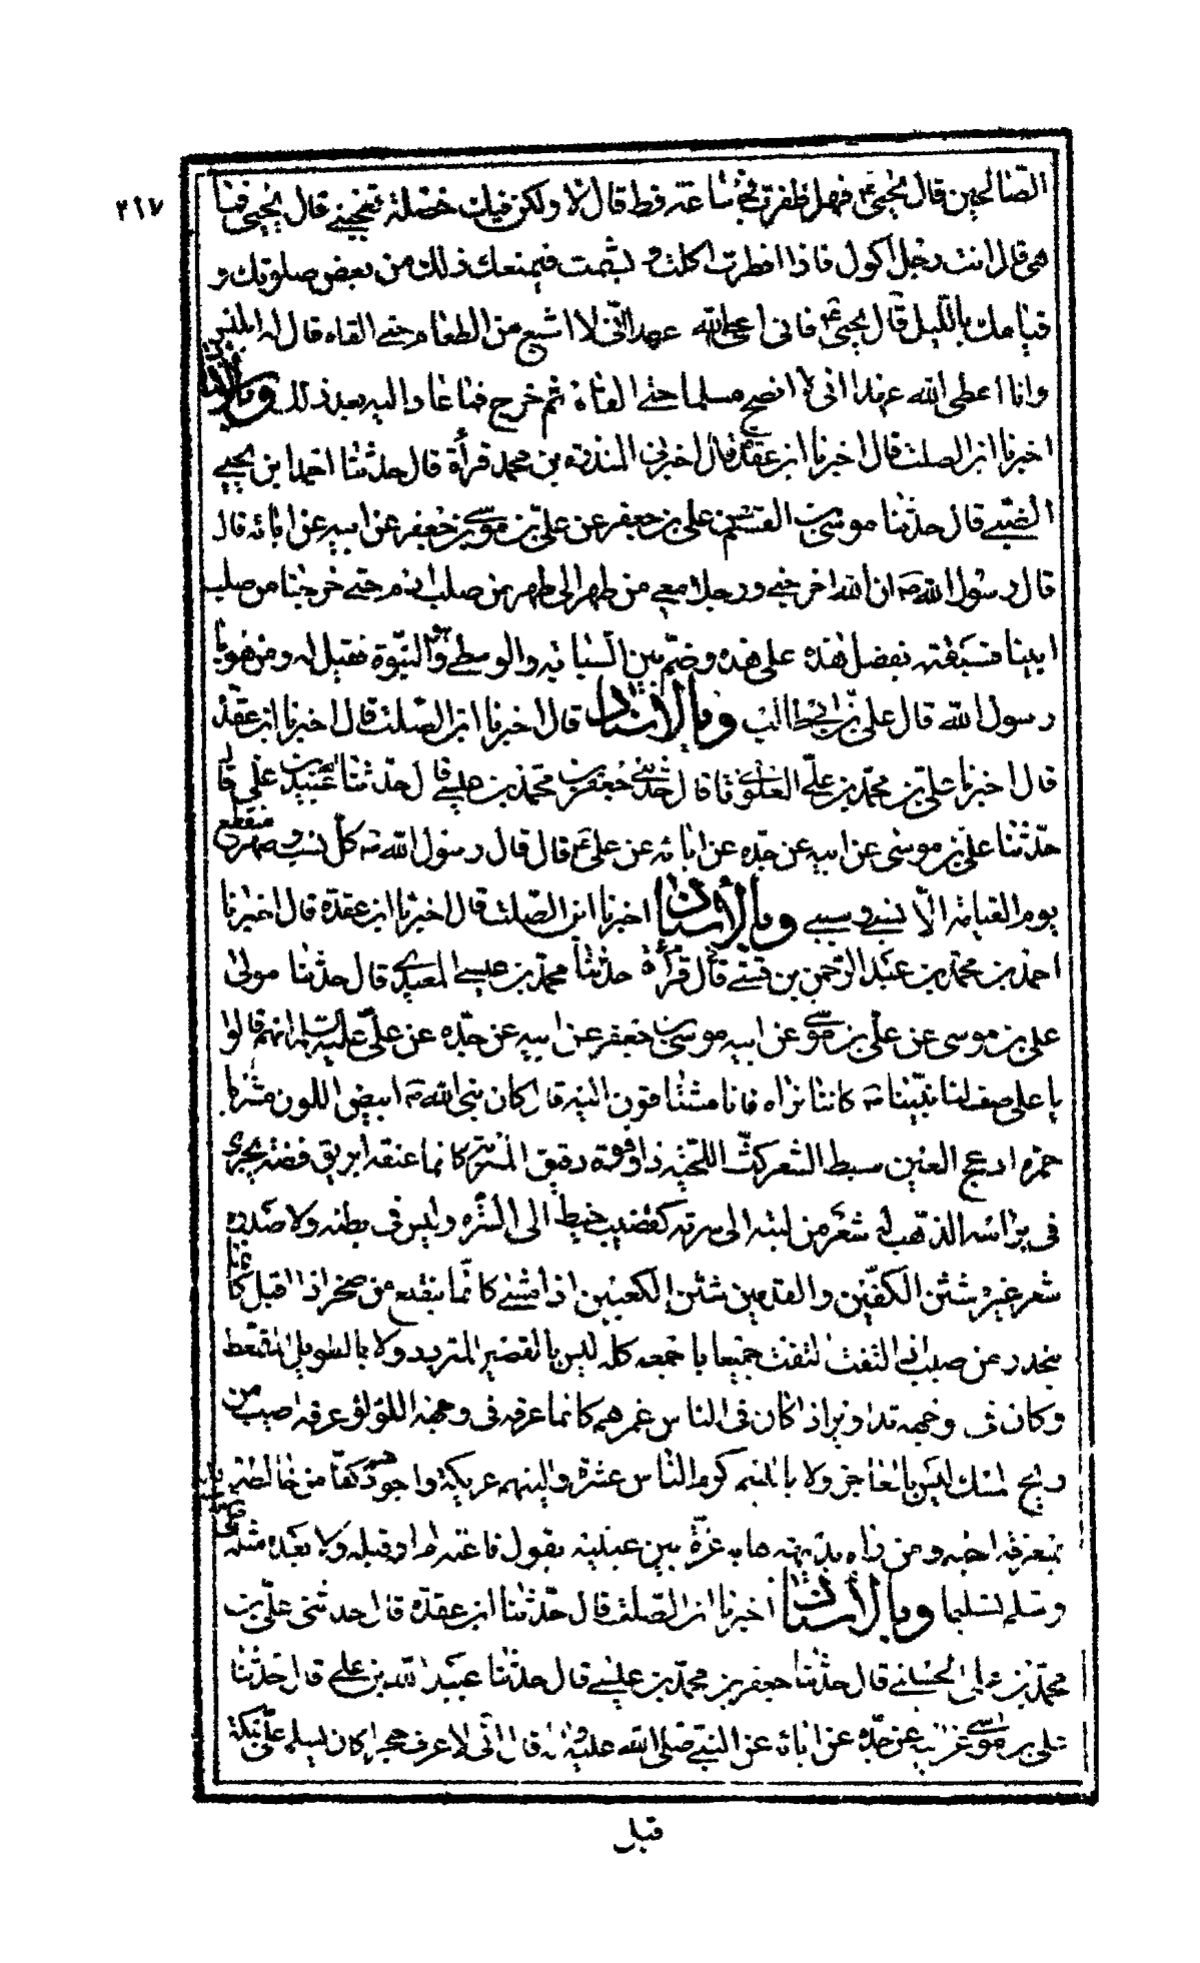 ٢١٧
الصالحين قال يحيى ع فهل ظفرت بي ساعة قط قال لا ولكن فيك خصلة تعجبني قال يحيى فما
هي قال انت رجل اكول فاذا افطرت اكلت و بشمت فيمنعك ذلك من بعض صلوتك و
قيامك بالليل قال يحيى ع فاني اعطي الله عهدا اني لا اشبع من الطعام حتى القاه قال له ابليس
وانا اعطي الله عهدا اني لا انصح مسلما حتى القاه ثم خرج فما عاد اليه بعد ذلك وبالاسناد
اخبرنا ابن الصلت قال اخبرنا ابن عقدة قال اخبرني المنذر بن محمد قرأة قال حدثنا احمد بن يحيى
الضبي قال حدثنا موسى بن القسم عن علي بن جعفر عن علي بن موسى بن جعفر عن ابيه عن ابائه قال
قال رسول الله ص ان الله اخرجني ورجلا معي من طهر الى طهر من صلب ادم حتى خرجنا من صلب
ابينا فسبقته بفضل هذه على هذه وضم بين السبابة والوسطى وهو النبوة فقيل له ومن هو يا
رسول الله قال علي بن ابي طالب وبالاسناد قال اخبرنا ابن الصلت قال اخبرنا ابن عقدة
قال اخبرنا علي بن محمد بن علي العلوي قال حدثني جعفر بن محمد بن عيسى قال حدثنا عبيد الله بن علي قال
حدثنا علي بن موسى عن ابيه عن جده عن ابائه عن علي ع قال قال رسول الله ص كل نسب وصهر منقطع
يوم القيامة الا نسبي وسببي وبالاسناد اخبرنا ابن الصلت قال اخبرنا ابن عقدة قال اخبرنا
احمد بن محمد بن عبد الرحمن بن فتني قال قرأة حدثنا محمد بن عيسى العبيدي قال حدثنا مولى
علي بن موسى عن علي بن موسى عن ابيه موسى بن جعفر عن ابيه عن جده عن علي عليه السلام انهم قالوا
يا علي صف لنا نبينا ص كاننا نراه فانا مشتاقون اليه قال كان نبي الله ص ابيض اللون مشربا
حمرة ادعج العين سبط الشعر كث اللحية ذا وفرة دقيق المسربة كانما عنقه ابريق فضة يجري
في تراقيه الذهب له شعر من لبته الى سرته كقضيب خيط الى السرة وليس في بطنه ولا صدره
شعر غيره شثن الكفين والقدمين شثن الكعبين اذا مشى كانما يتقلع من صخر اذا اقبل كانما
ينحدر من صبب اذا التفت التفت جميعا باجمعه كله ليس بالقصير المتردد ولا بالطويل المتمغط
وكان في وجهه تداوير اذا كان في الناس غمرهم كانما عرقه في وجهه اللؤلؤ عرقه اطيب من
ريح المسك ليس بالعاجز ولا باللئيم اكرم الناس عشرة والينهم عريكة واجودهم كفا من خالطه
بمعرفة احبه ومن راه بديهة هابه عزه بين عينيه يقول ناعته لم ار قبله ولا بعده مثله
وسلم تسليما وبالاسناد اخبرنا ابن الصلت قال حدثنا ابن عقدة قال حدثني علي بن
محمد بن علي الحسيني قال حدثنا جعفر بن محمد بن عيسى قال حدثنا عبيد الله بن علي قال حدثنا
علي بن موسى عن ابيه عن جده عن ابائه عن النبي صلى الله عليه واله قال اني لاعرف حجرا كان يسلم علي بمكة
قبل